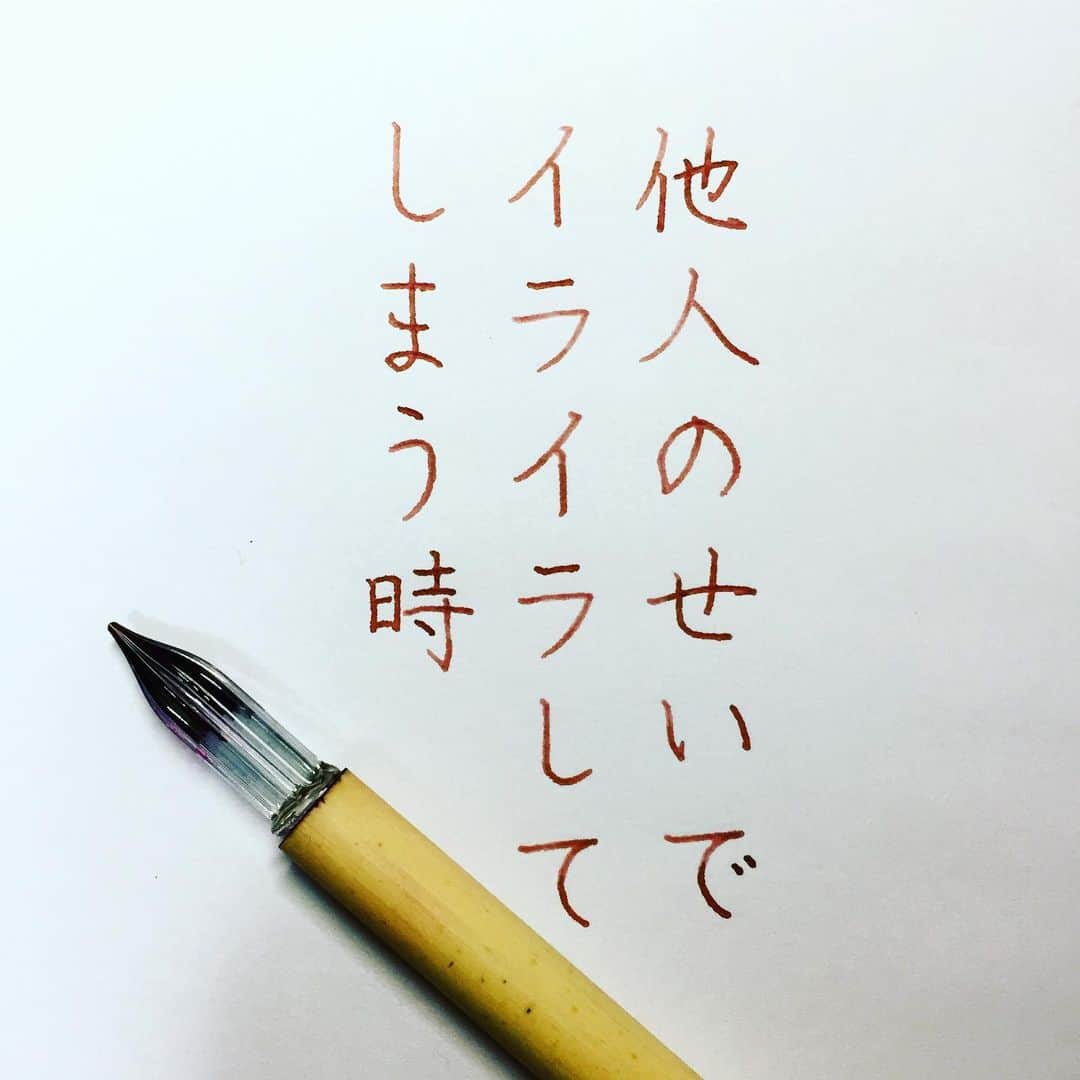 他人のせいで
イライラして
しまう時